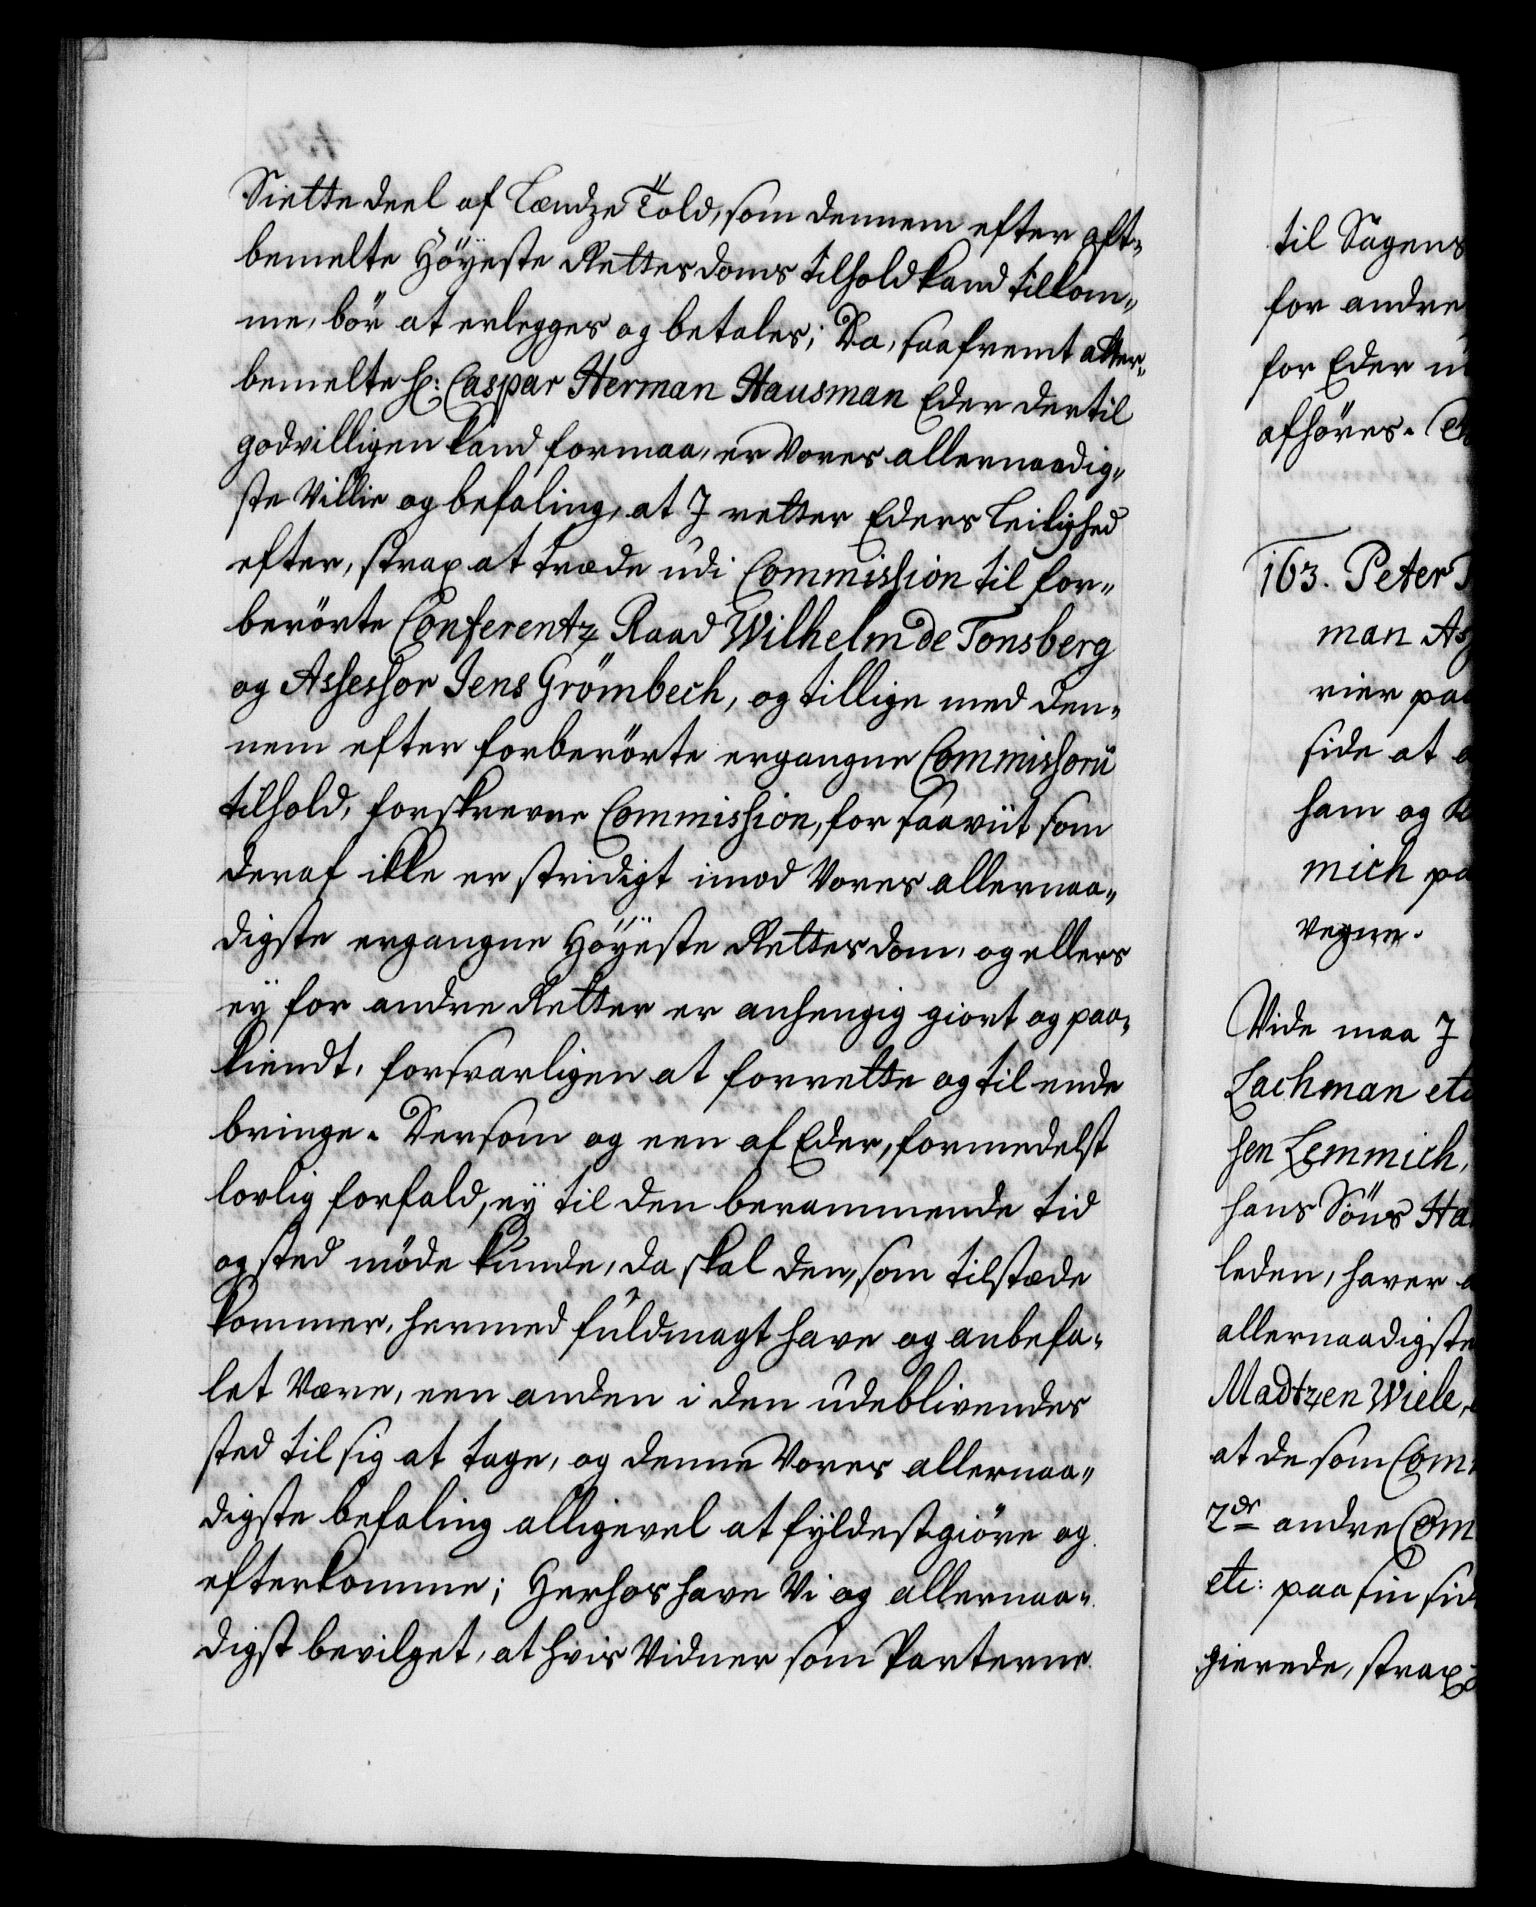 Siette deel af Lændze Told, som dennem efter oft-
bemelte Höyeste Rettes doms tilhold kand tilkom-
me, bör at erlegges og betales; Da, saafremt atter-
bemelte H: Caspar Herman Hausman Eder dertil
godvilligen kand formaa, er Vores allernaadig-
ste Villie og befaling, at J retter Eders Leilighed
efter, strax at træde udi Commission til for-
berörte Conferentz Raad Wilhelm de Tonsberg
og Assessor Jens Grömbech, og tillige med den-
nem efter forberörte ergangne Commissorii
tilhold, forskrevne Commission, for saaviit som
deraf ikke er stridigt imod Vores allernaa-
digste ergangne Höyeste Rettes dom, og ellers
ey for andre Retter er anhengig giort og paa-
kiendt, forsvarligen at forrette og til ende
bringe. Dersom og een af Eder, formedelst
lovlig forfald, ey til den berammende tid
og sted möde kunde, da skal den, som tilstæde
kommer, hermed fuldmagt have og anbefa-
let Være, een anden i den udeblivendes
sted til sig at tage, og denne Vores allernaa-
digste befaling alligevel at fyldestgiöre og
efterkomme; Herhos have Vi og allernaa-
digst bevilget, at hvis Vidner som Parterne
til Sagens
for andre
for Eder u
afhöres.
163. Peter
man As
rier paa
side at
ham og
mich pa
vegne.
Vide maa J
Lachman etc
sen Lemmich,
hans Söns Ha
leden, haver
allernaadigste
Madtzen Wiele,
at de som Com
2de andre Com
etc: paa sin sid
gierede, strax